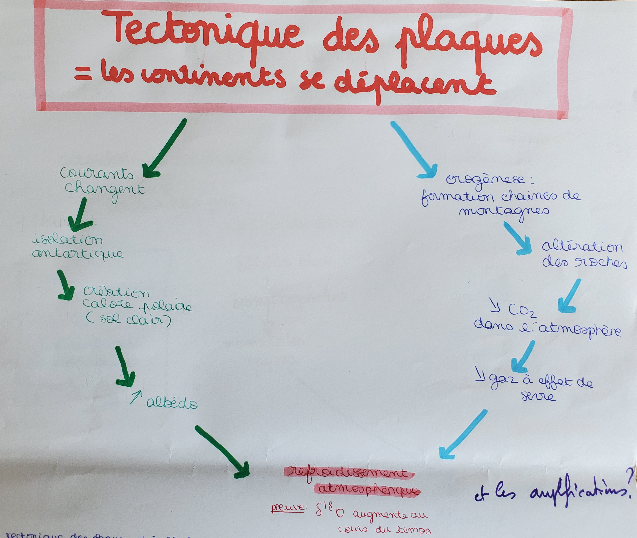 Tectonique des plaques
= les continents se déplacent
courants
changent
isolation
antarctique
création
calotte polaire
(sol clair)
↗ albédo
orogénèse :
formation chaînes de
montagnes
altération
des roches
↘ CO₂
dans l'atmosphère
↘ gaz à effet de
serre
refroidissement
atmosphérique
preuve δ¹⁸O augmente au
cours du temps
et les amplifications?
tectonique des